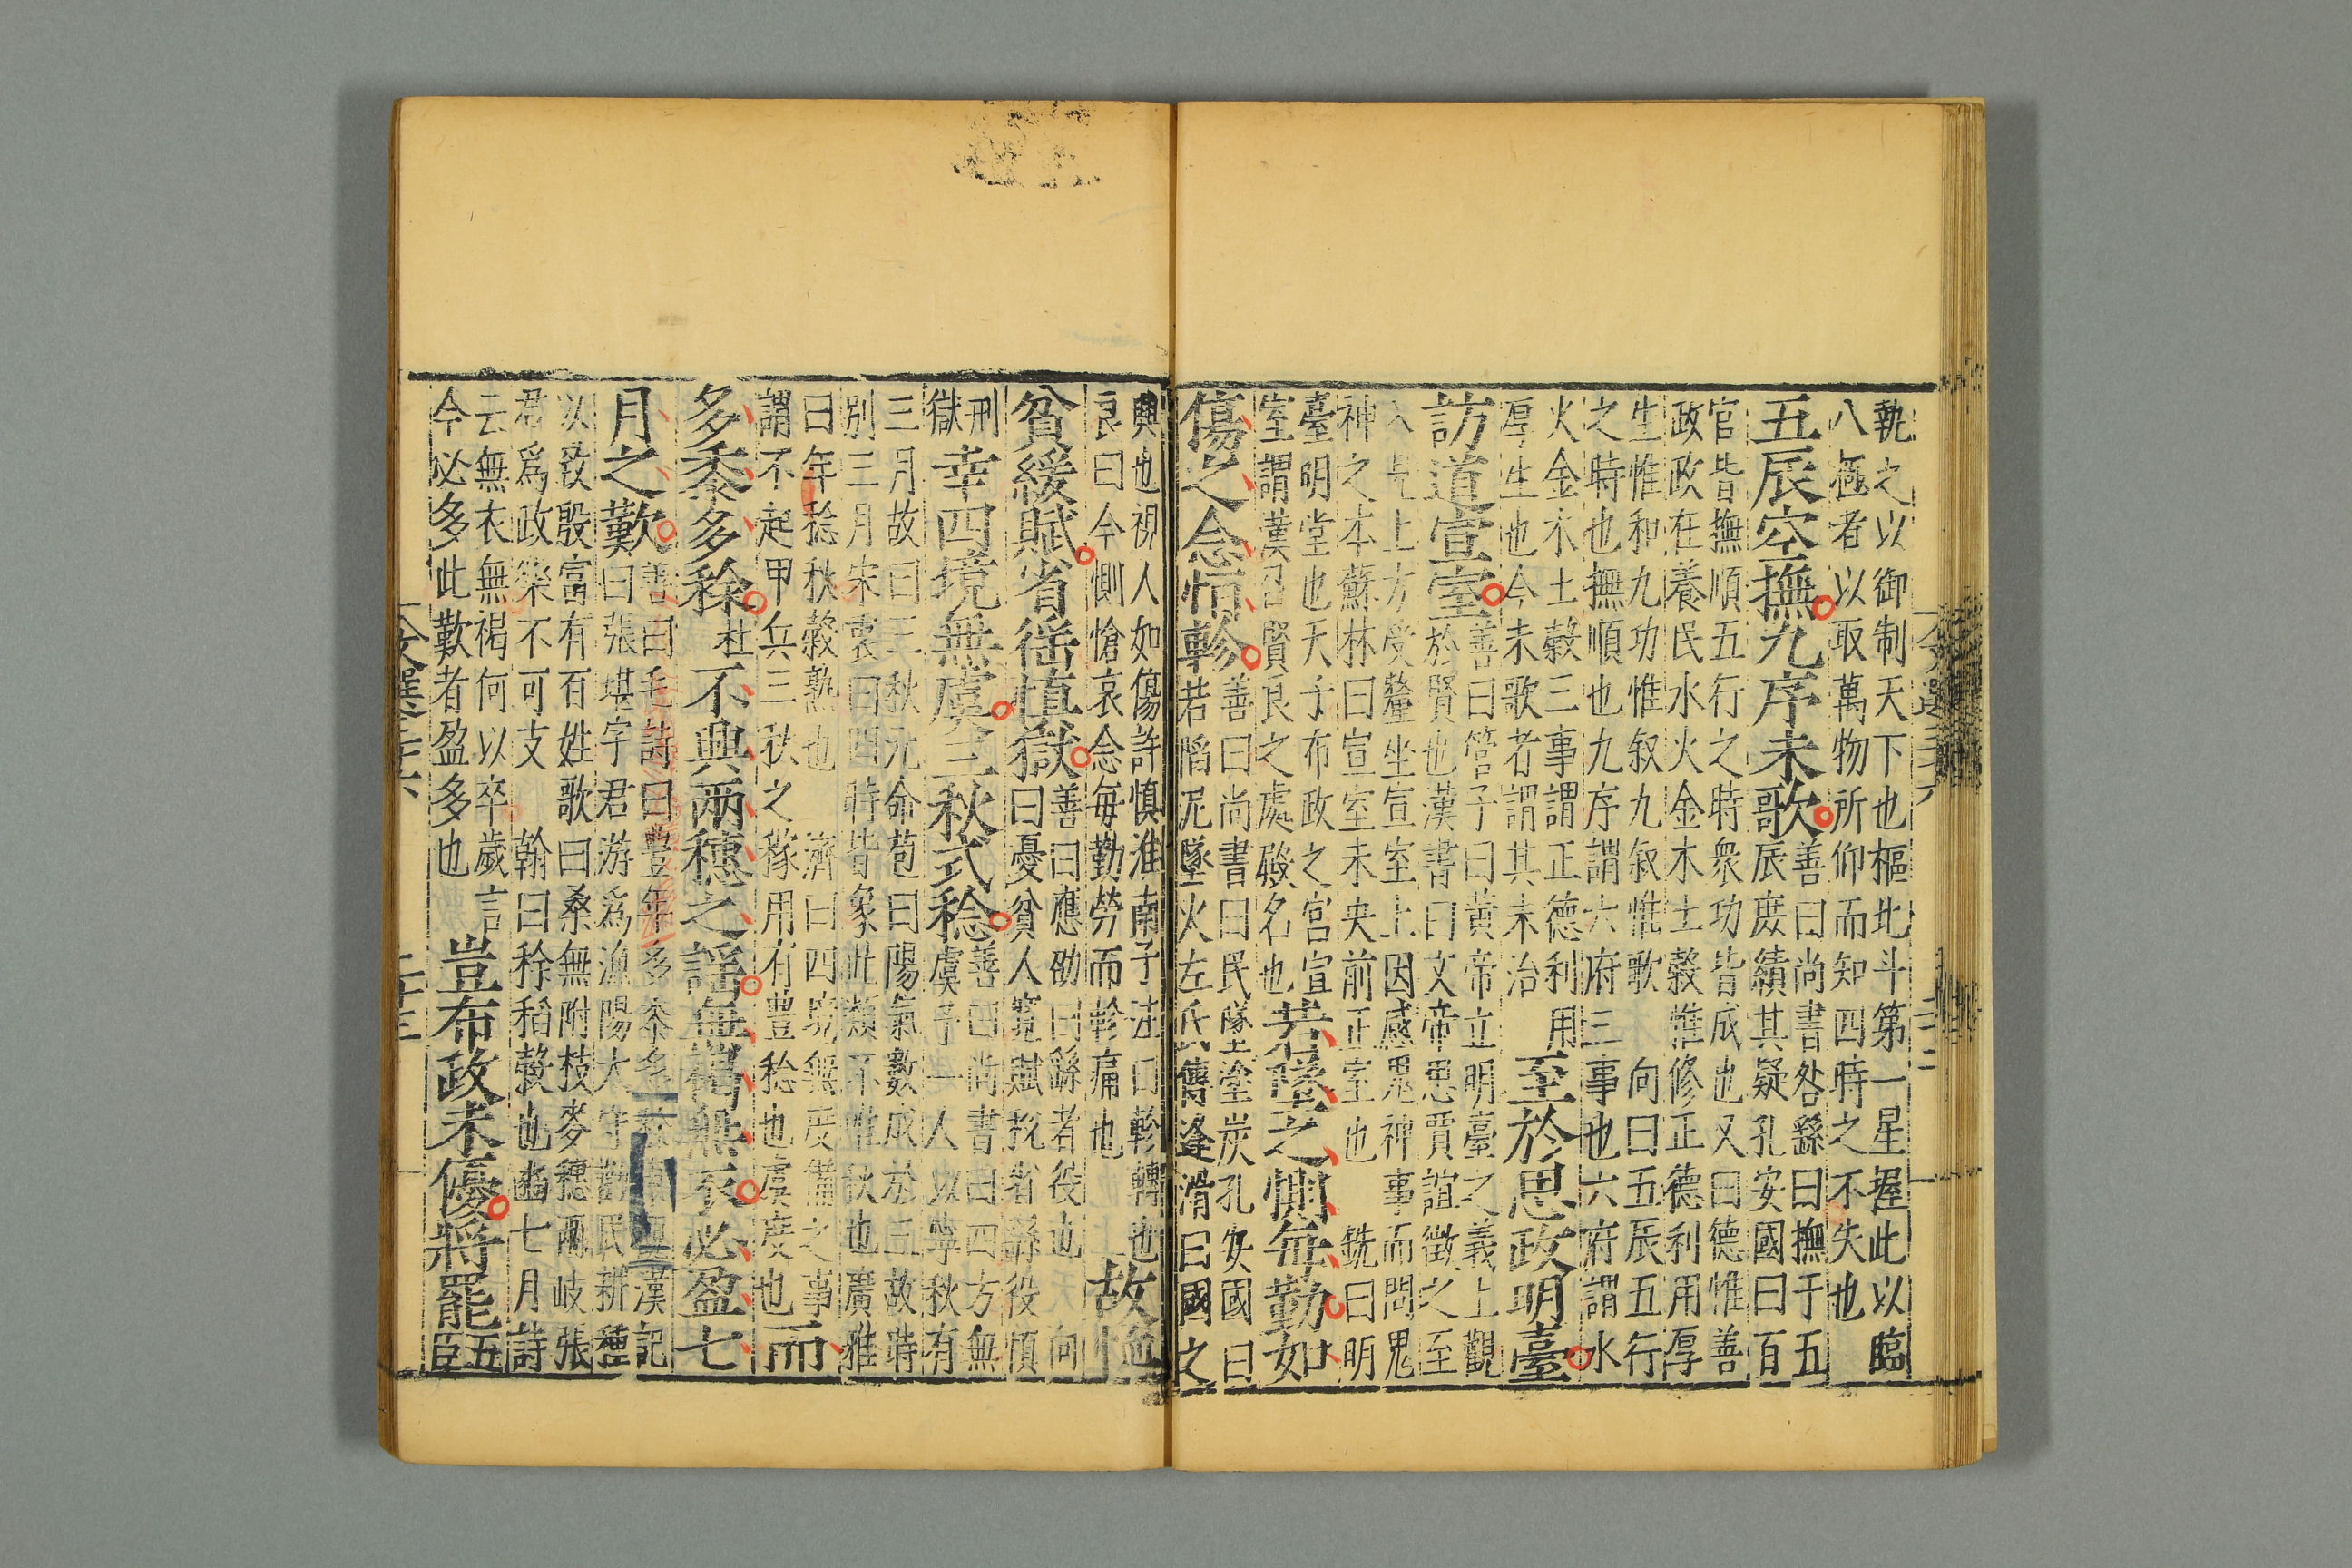 執之以御制天下也樞北斗第一星握此以臨
八極者以取萬物所仰而知四時之不失也
五辰空撫九序未歌
善曰尚書咎繇曰撫于五
辰庶績其疑孔安國曰百
官皆撫順五行之時衆功皆成也又曰德惟善
政政在養民水火金木土穀惟修正德利用厚
生惟和九功惟叙九叙惟歌 向曰五辰五行
之時也撫順也九序謂六府三事也六府謂水
火金木土穀三事謂正德利用
厚生也今未歌者謂其未治
至於思政明臺
訪道宣室
善曰管子曰黃帝立明臺之義上觀
於賢也漢書曰文帝思賈誼徵之至
入見上方受釐坐宣室上因感鬼神事而問鬼
神之本蘇林曰宣室未央前正室也 銑曰明
臺明堂也天子布政之宮宣
室謂漢召賢良之處殿名也
若墜之惻每勤如
傷之念恒軫
善曰尚書曰民墜塗炭孔安國曰
若陷泥墜火左氏傳逢滑曰國之
興也視人如傷許慎淮南子注曰軫轉也
良曰今惻愴哀念每勤勞而軫痛也
故
貧緩賦省徭慎獄
善曰應劭曰繇者役也 向
曰憂貧人寬賦稅省繇役慎
刑
獄
幸四境無虞三秋式稔
善曰尚書曰四方無
虞予一人以寧秋有
三月故曰三秋元命苞曰陽氣數成於三故時
別三月宋衷曰四時皆象此類不惟秋也廣雅
曰年稔秋穀熟也 濟曰四境無虞備之事
謂不起甲兵三秋之稼用有豊稔也虞度也
而
多黍多稌
杜
不興兩穗之謡無褐無衣必盈七
月之歎
善曰毛詩曰豊年多黍多稌東觀漢記
曰張堪字君游爲漁陽太守勸民耕種
以致殷富有百姓歌曰桑無附枝麥穗兩岐張
君爲政樂不可支 翰曰稌稻穀也豳七月詩
云無衣無褐何以卒歲言
今必多此歎者盈多也
豈布政未優將罷
五
臣
文選三十六
二十三